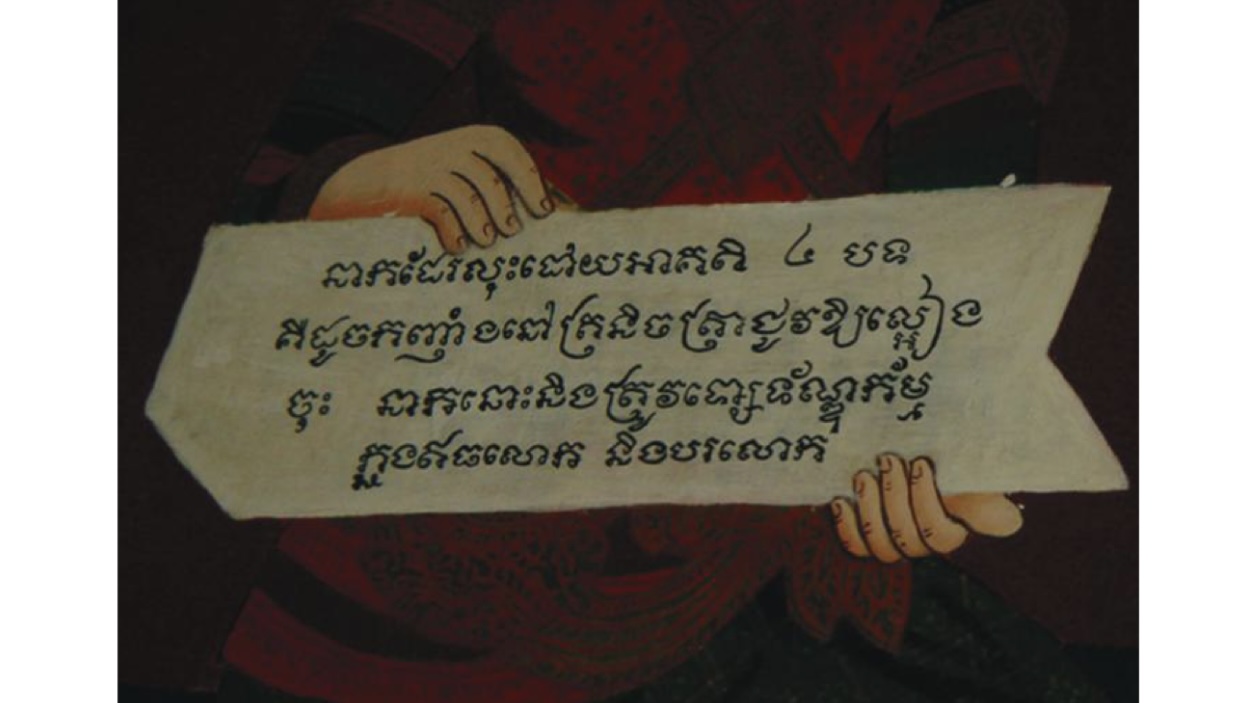 នាកដែរលុះដោយអាគតិ ៤ បទ
គឺដូចកញ្ចាំងនៅត្រនិចត្រាជូវឱ្យល្អៀង
ចុះ នាកនោះនិងត្រូវទោស្សទ័ណ្ឌកម្ម
ក្នុងឥធលោក និងបរលោក